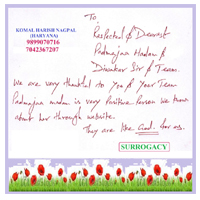 KOMAL HARISH NAGPAL
(HARYANA)
9899070716
7042367207
To,
Respected & Dearest
Padmajaa Madam &
Diwaker Sir & Team.
We are very thankful to You & Your Team
Padmajaa madam is very Positive Person we
about her through website.
They are like God for us.
SURROGACY